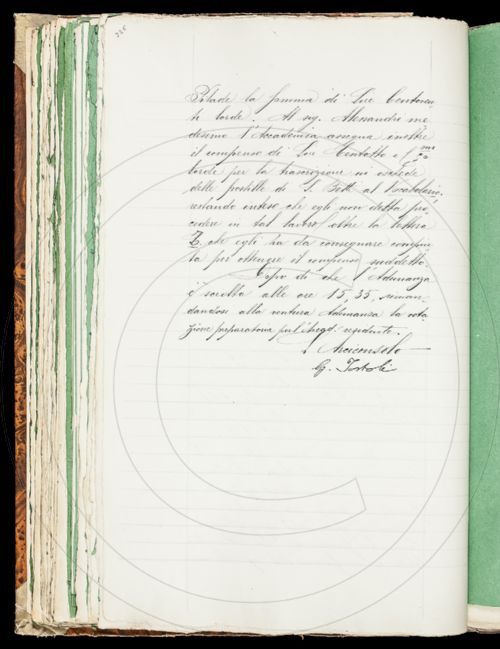 la somma di Lire
lorde. Al sig. Alessandri me
desimo l'Accademia assegna inoltre
il compenso di Lire
lorde per la trascrizione in schede
delle postille di al Vocabolario,
restando inteso che egli non debba pro
cedere in tal lavoro oltre la lettera
Z, che egli ha da consegnare compiu
ta per ottenere il compenso suddetto.
Dopo di che l'Adunanza
è sciolta alle ore 15,35, riman
dandosi alla ventura Adunanza la vota
zione preparatoria pel residente.
L'Arciconsolo
G. Tortoli